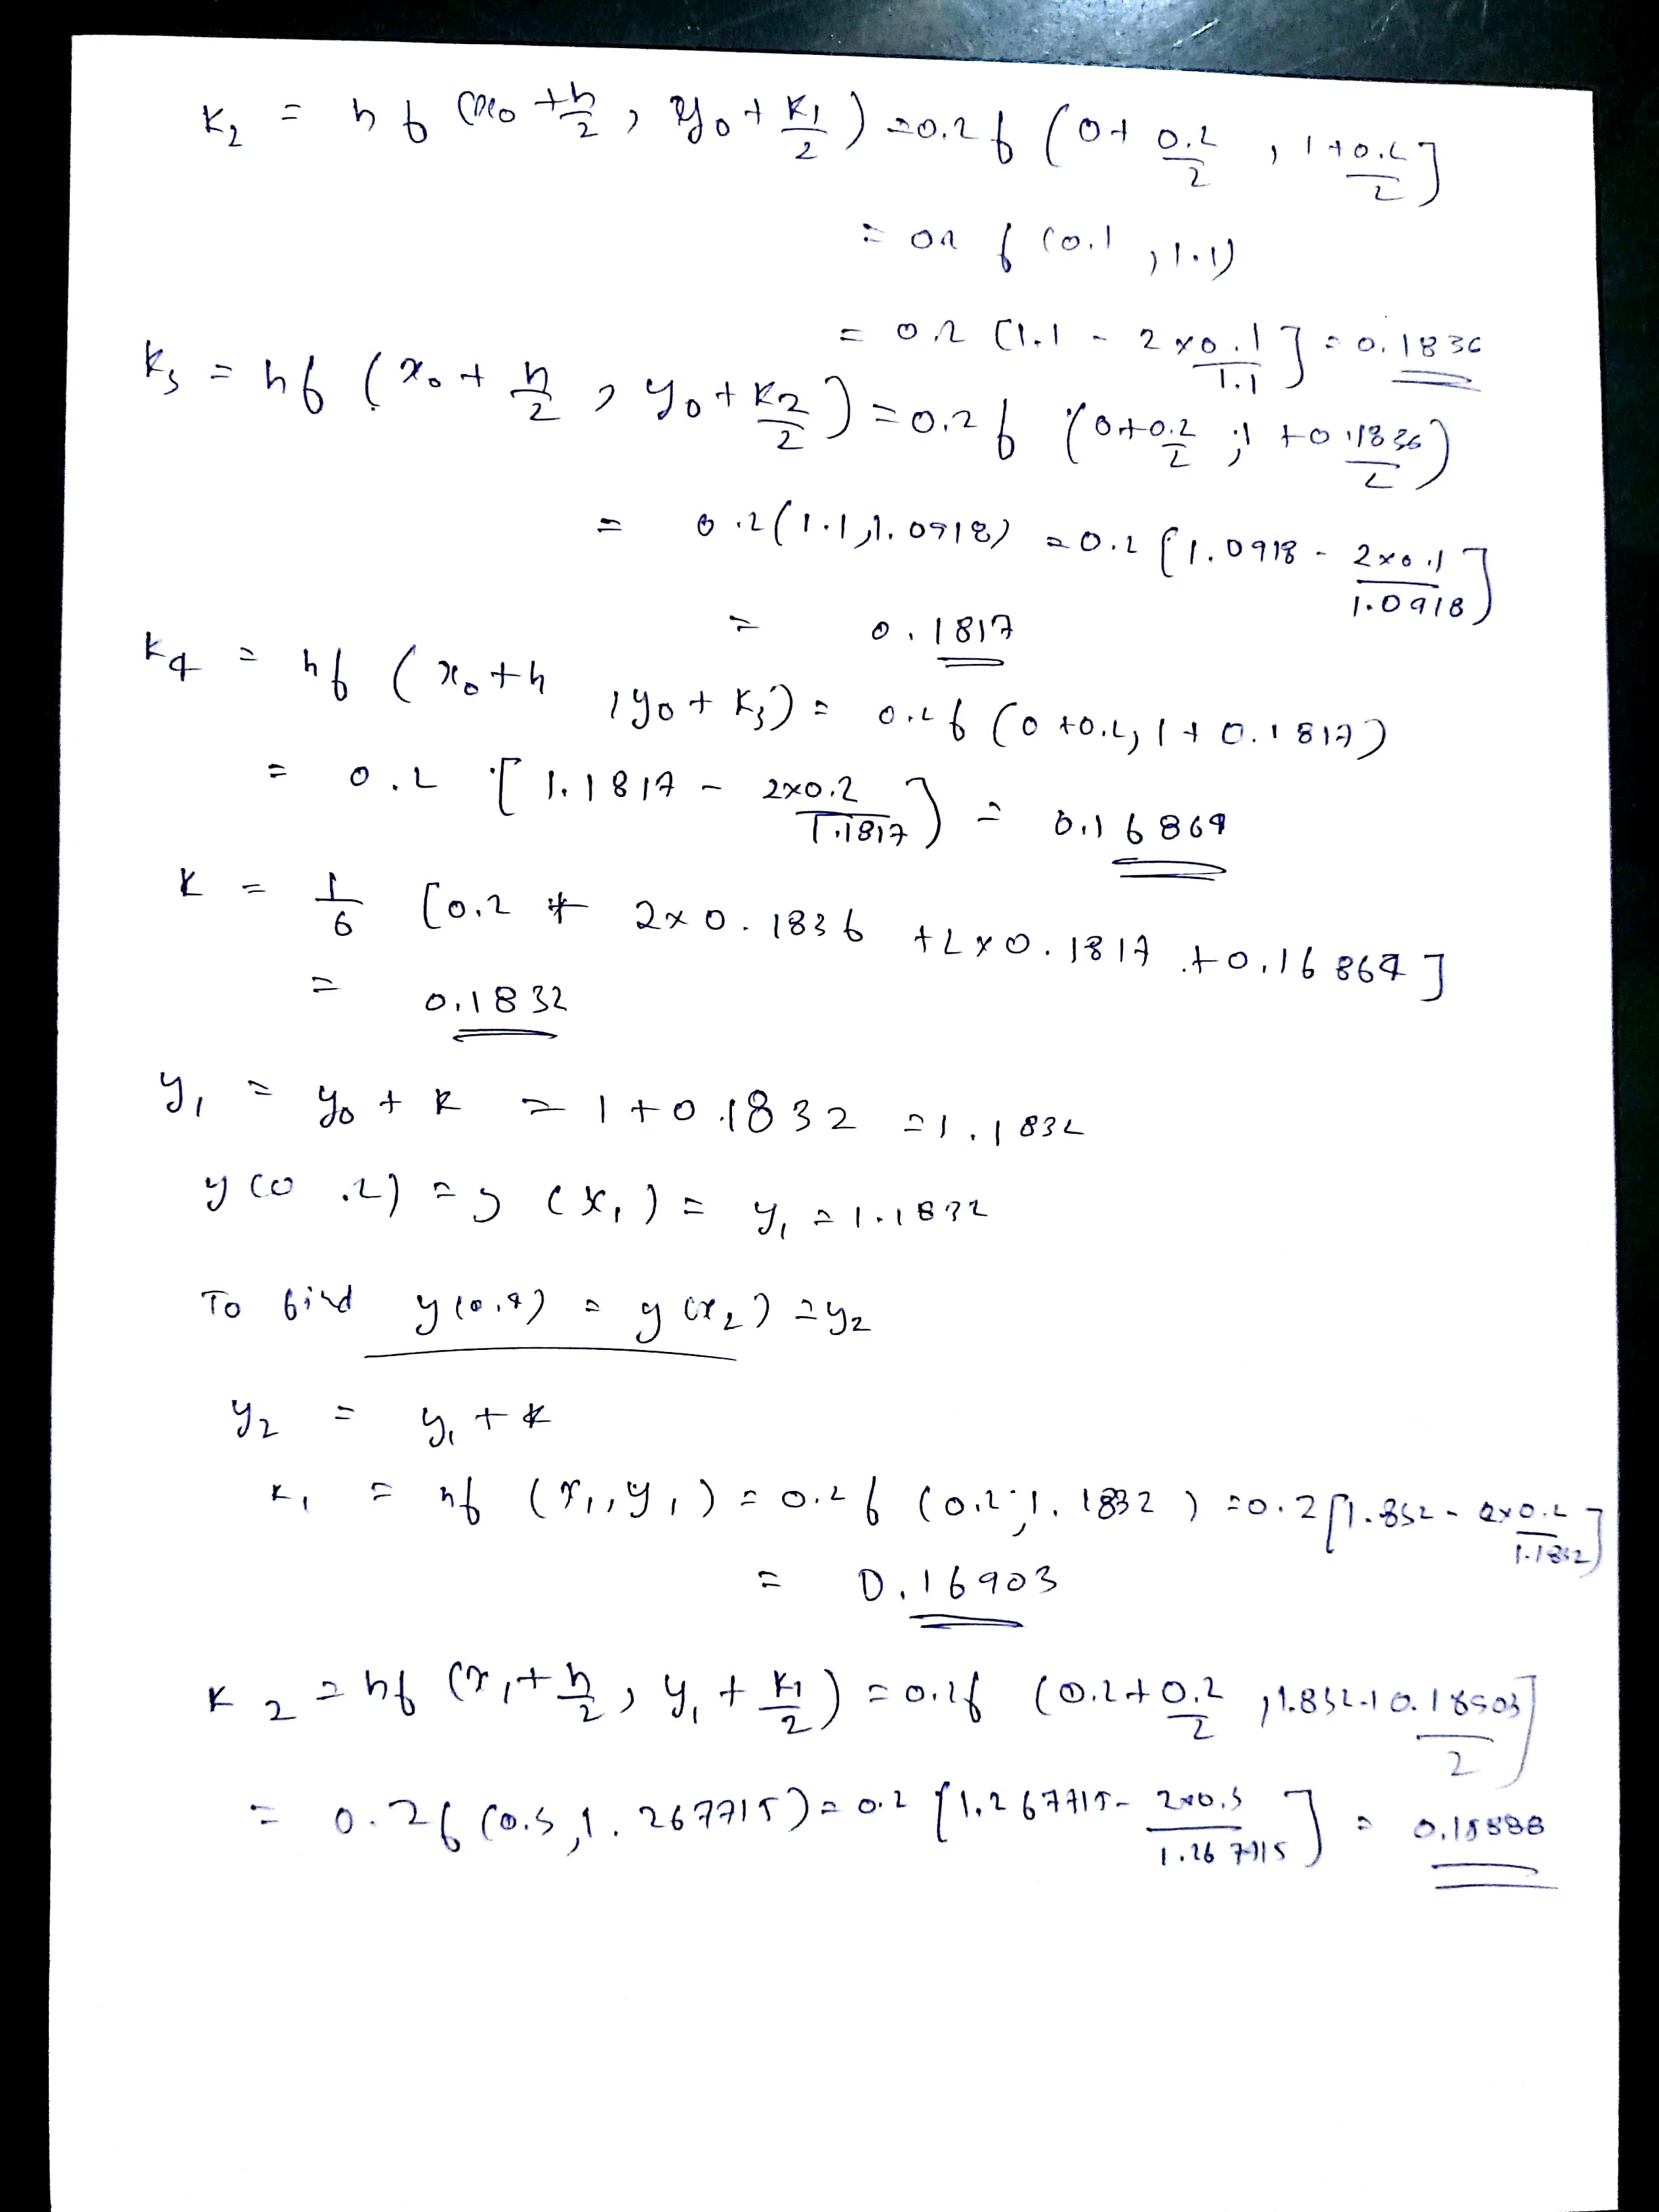 K₂ = hf (x₀ + h/2 , y₀ + K₁/2) = 0.2 f (0 + 0.2/2 , 1 + 0.2/2]
= 0.2 f (0.1 , 1.1)
= 0.2 [1.1 - 2×0.1/1.1] = 0.1836
K₃ = hf (x₀ + h/2 , y₀ + K₂/2) = 0.2 f (0+0.2/2 ; 1 + 0.1836/2)
= 0.2 (1.1, 1.0918) = 0.2 [1.0918 - 2×0.1/1.0918]
= 0.1817
K₄ = hf (x₀ + h , y₀ + K₃) = 0.2 f (0 + 0.2, 1 + 0.1817)
= 0.2 [1.1817 - 2×0.2/1.1817] = 0.16864
K = 1/6 [0.2 + 2×0.1836 + 2×0.1817 + 0.16864]
= 0.1832
y₁ = y₀ + K = 1 + 0.1832 = 1.1832
y(0.2) = y(x₁) = y₁ = 1.1832
To find y(0.4) = y(x₂) = y₂
y₂ = y₁ + K
K₁ = hf (x₁, y₁) = 0.2 f (0.2, 1.1832) = 0.2 [1.832 - 2×0.2/1.1832]
= 0.16903
K₂ = hf (x₁ + h/2 , y₁ + K₁/2) = 0.2 f (0.2 + 0.2/2 , 1.832 + 0.16903/2]
= 0.2 f (0.3, 1.267715) = 0.2 [1.267715 - 2×0.3/1.267715] = 0.15888